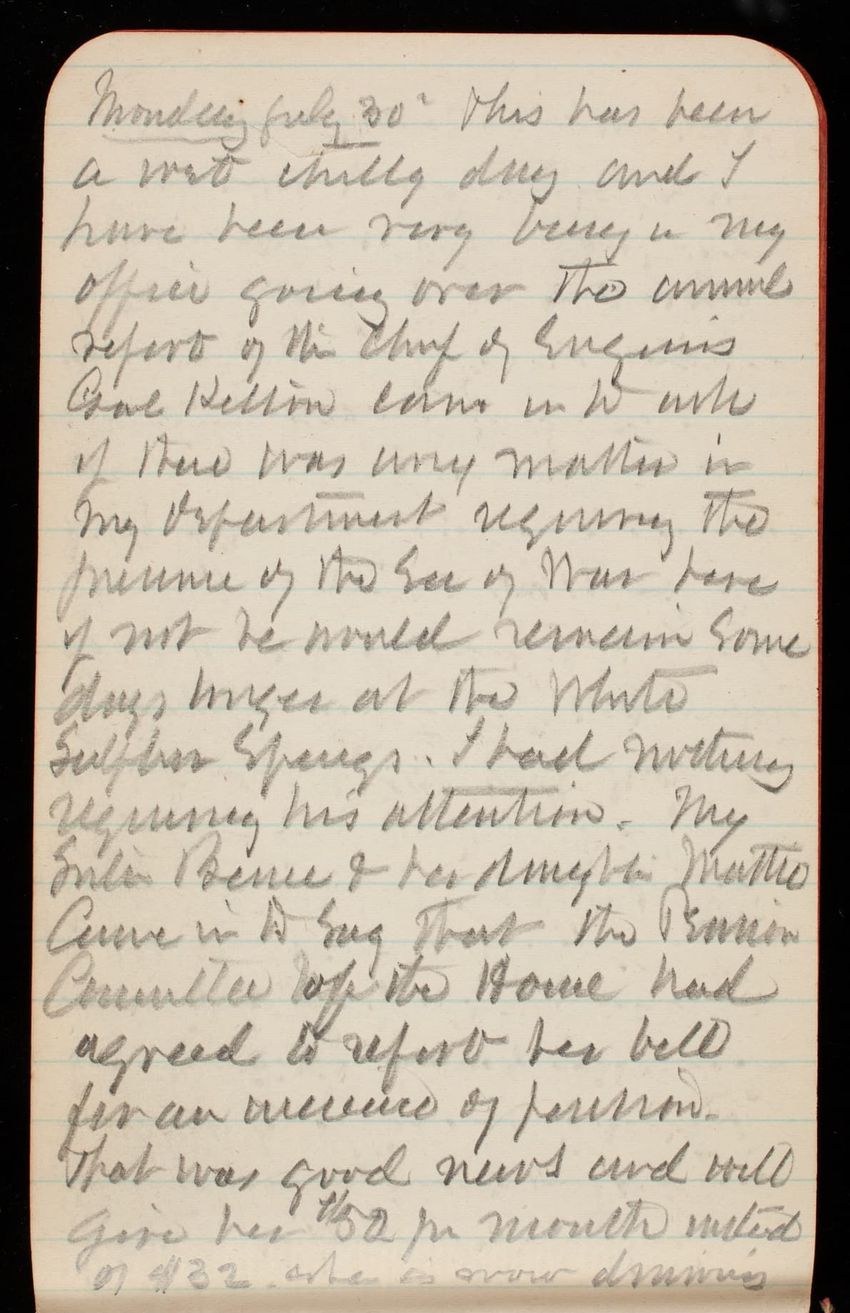 Monday July 30" This has been
a wet chilly day and I
have been very busy in my
office going over the annual
report of the Chief of Engineers
Genl Kelton came in to ask
if there was any matter in
my department requiring the
presence of the Sec of War here
if not he would remain some
days longer at the White
Sulphur Springs. I had nothing
requiring his attention. My
Sister & her daughter Mattie
Came in to say that the Pension
Committee of the House had
agreed to report her bill
for an increase of pension.
That was good news and will
give her $50 per month instead
of $32 she is now drawing